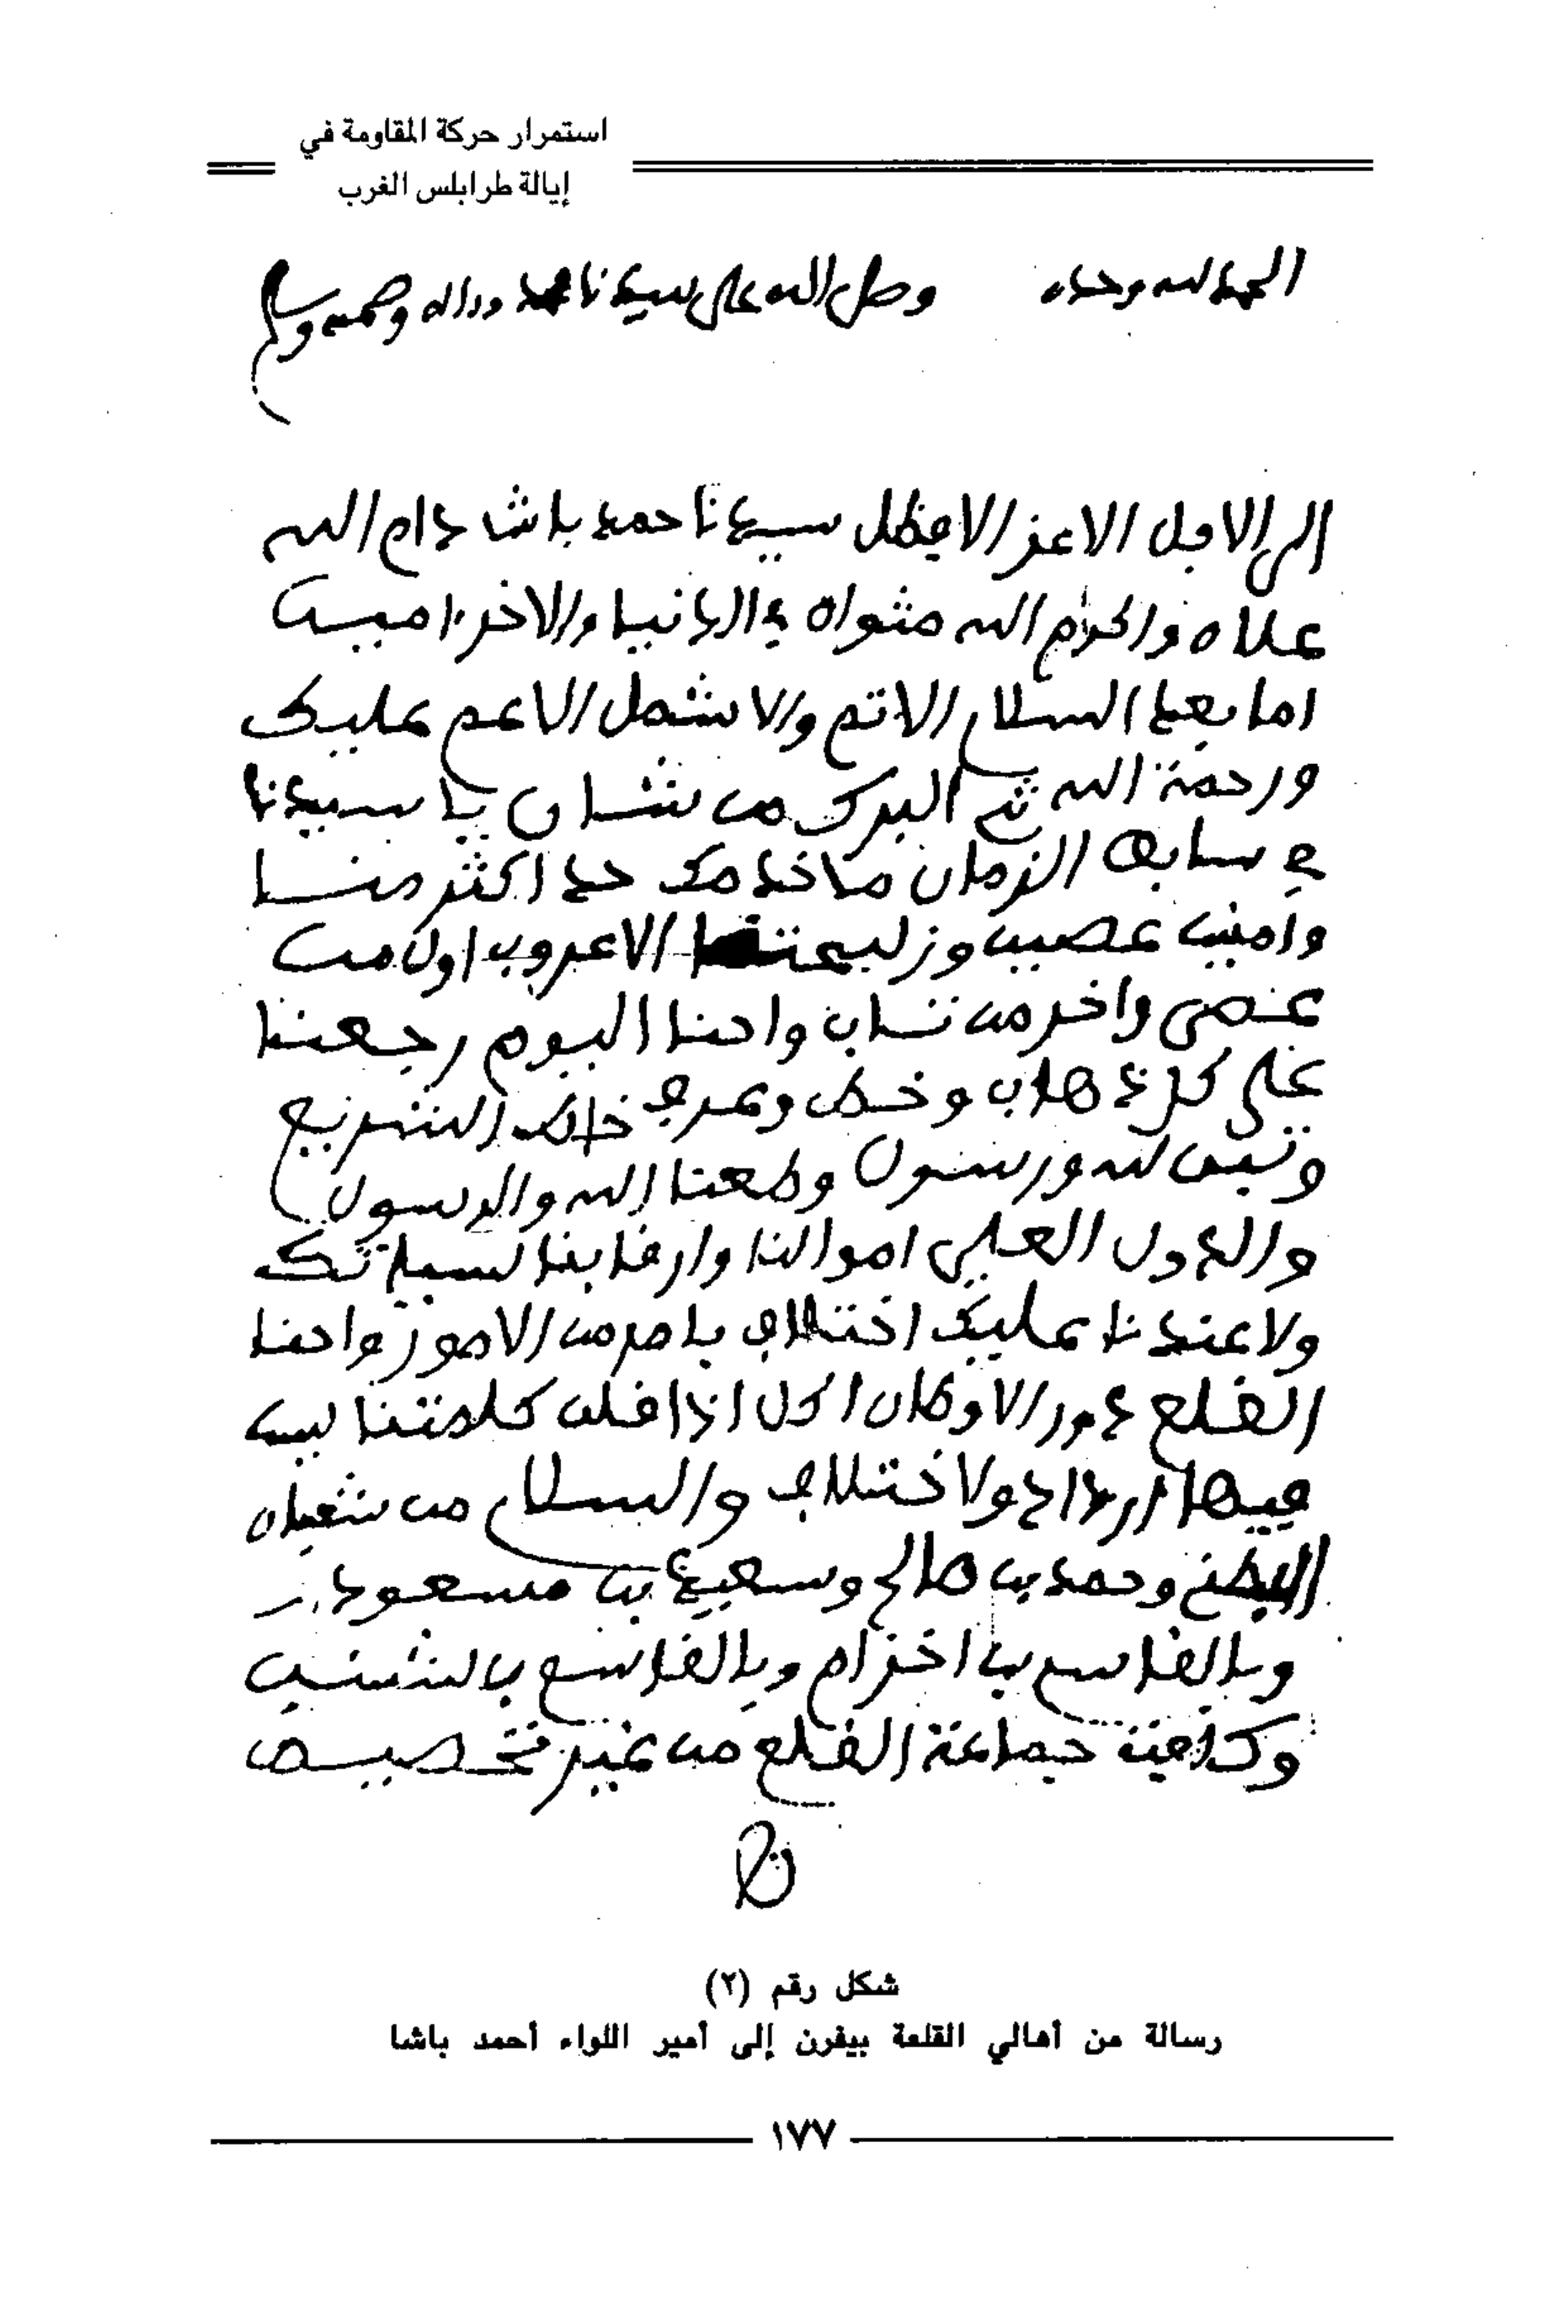 استمرار حركة المقاومة في
إيالة طرابلس الغرب
الحمد لله وحده وصل الله على سيدنا محمد وءاله وصحبه وسلم
الى الاجل الاعز الافضل سيدنا حمد باشا دام الله
علاه واكرم الله مثواه في الدانيا والاخره امين
اما بعد السلام الاتم والاشمل الاعم عليك
ورحمة الله ثم البرك من شان يا سيدنا
في سابق الزمان ما خدمك حد اكثر منا
وامنين عصين الاعروب اول من
عصى واخر من تاب واحنا اليوم رجعنا
على كل ذهاب وخض وعرف الشريع
لله ورسول وطعنا الله والرسول
والدول العلي اموالنا وارقابنا لسبيلتك
ولا عندنا عليك اختلاف بامر من الامور واحنا
القلع دور الاوطان اكل اذا قلت كلمتنا ليس
فيها ارداد ولا ختلاف والسلام من شعبان
وحمد بن صالح وسعيد بن مسعود
وبالقاسم بن اخزام وبالقاسم بالشنين
وكافية جماعة القلع من غير تخصيص
شكل رقم (٢)
رسالة من أهالي القلعة بيفرن إلى أمير اللواء أحمد باشا
١٧٧